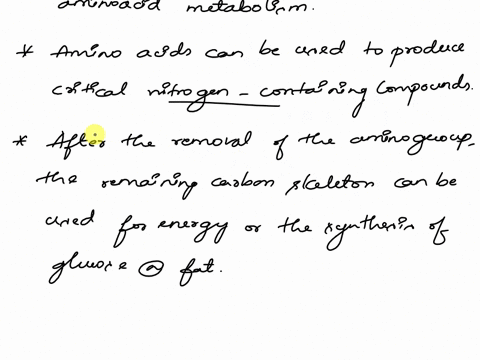 aminoacid metabolism.
* Amino acids can be used to produce
critical nitrogen - containing compounds.
* After the removal of the aminogroup,
the remaining carbon skeleton can be
used for energy or the synthesis of
glucose or fat.